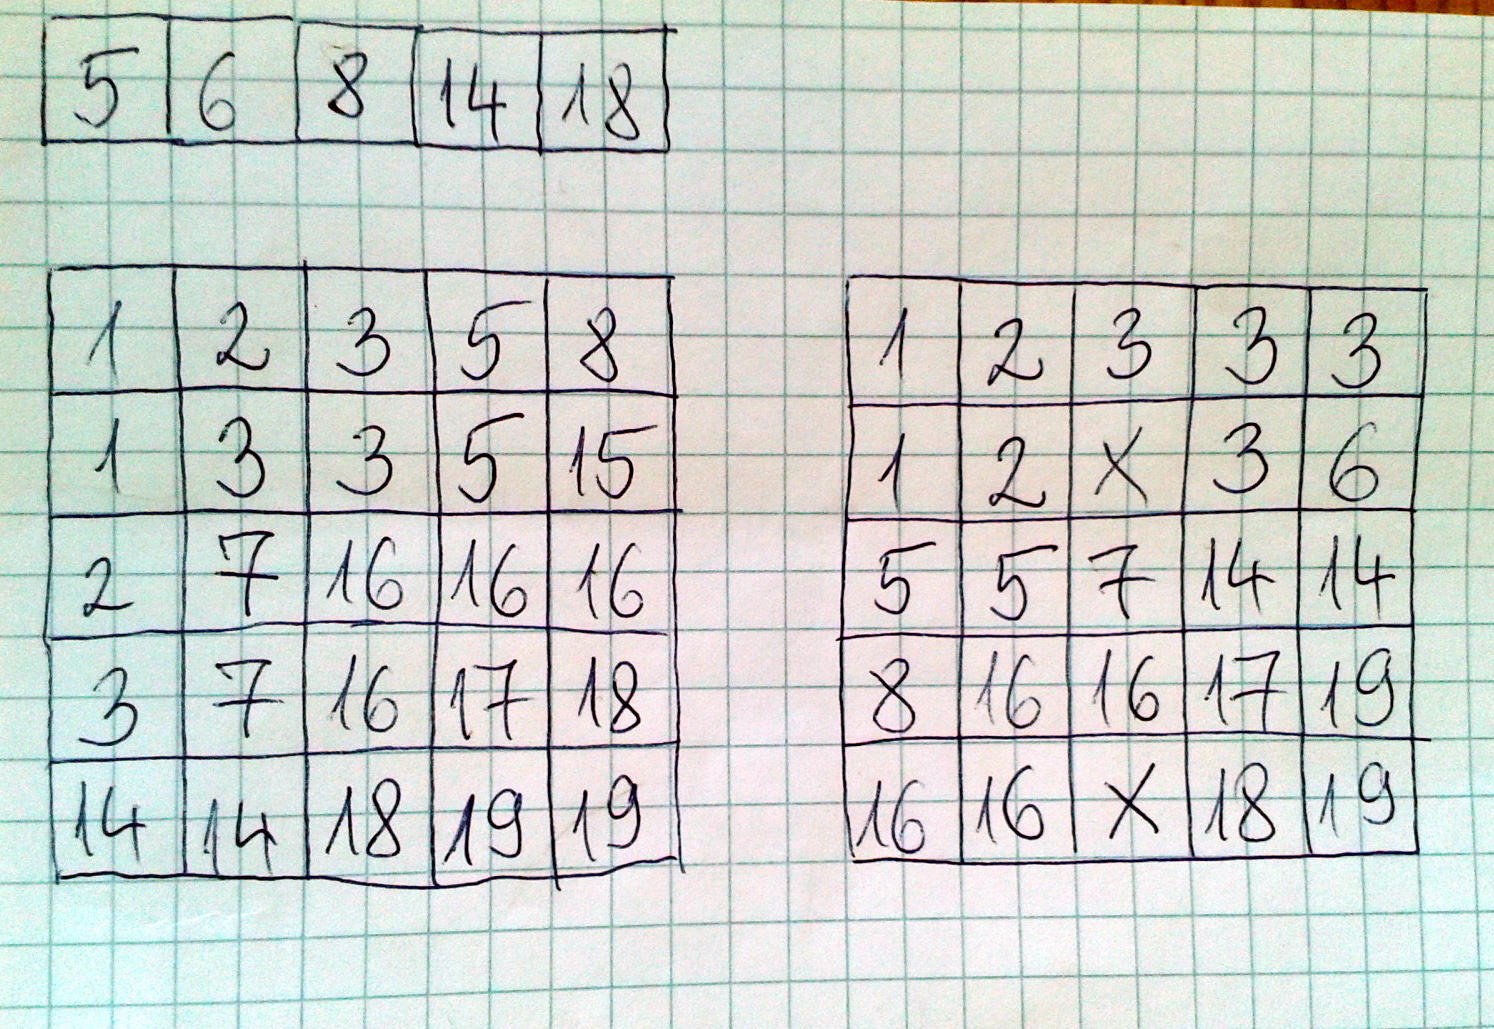 5 6 8 14 18
1 2 3 5 8
1 3 3 5 15
2 7 16 16 16
3 7 16 17 18
14 14 18 19 19
1 2 3 3 3
1 2 X 3 6
5 5 7 14 14
8 16 16 17 19
16 16 X 18 19